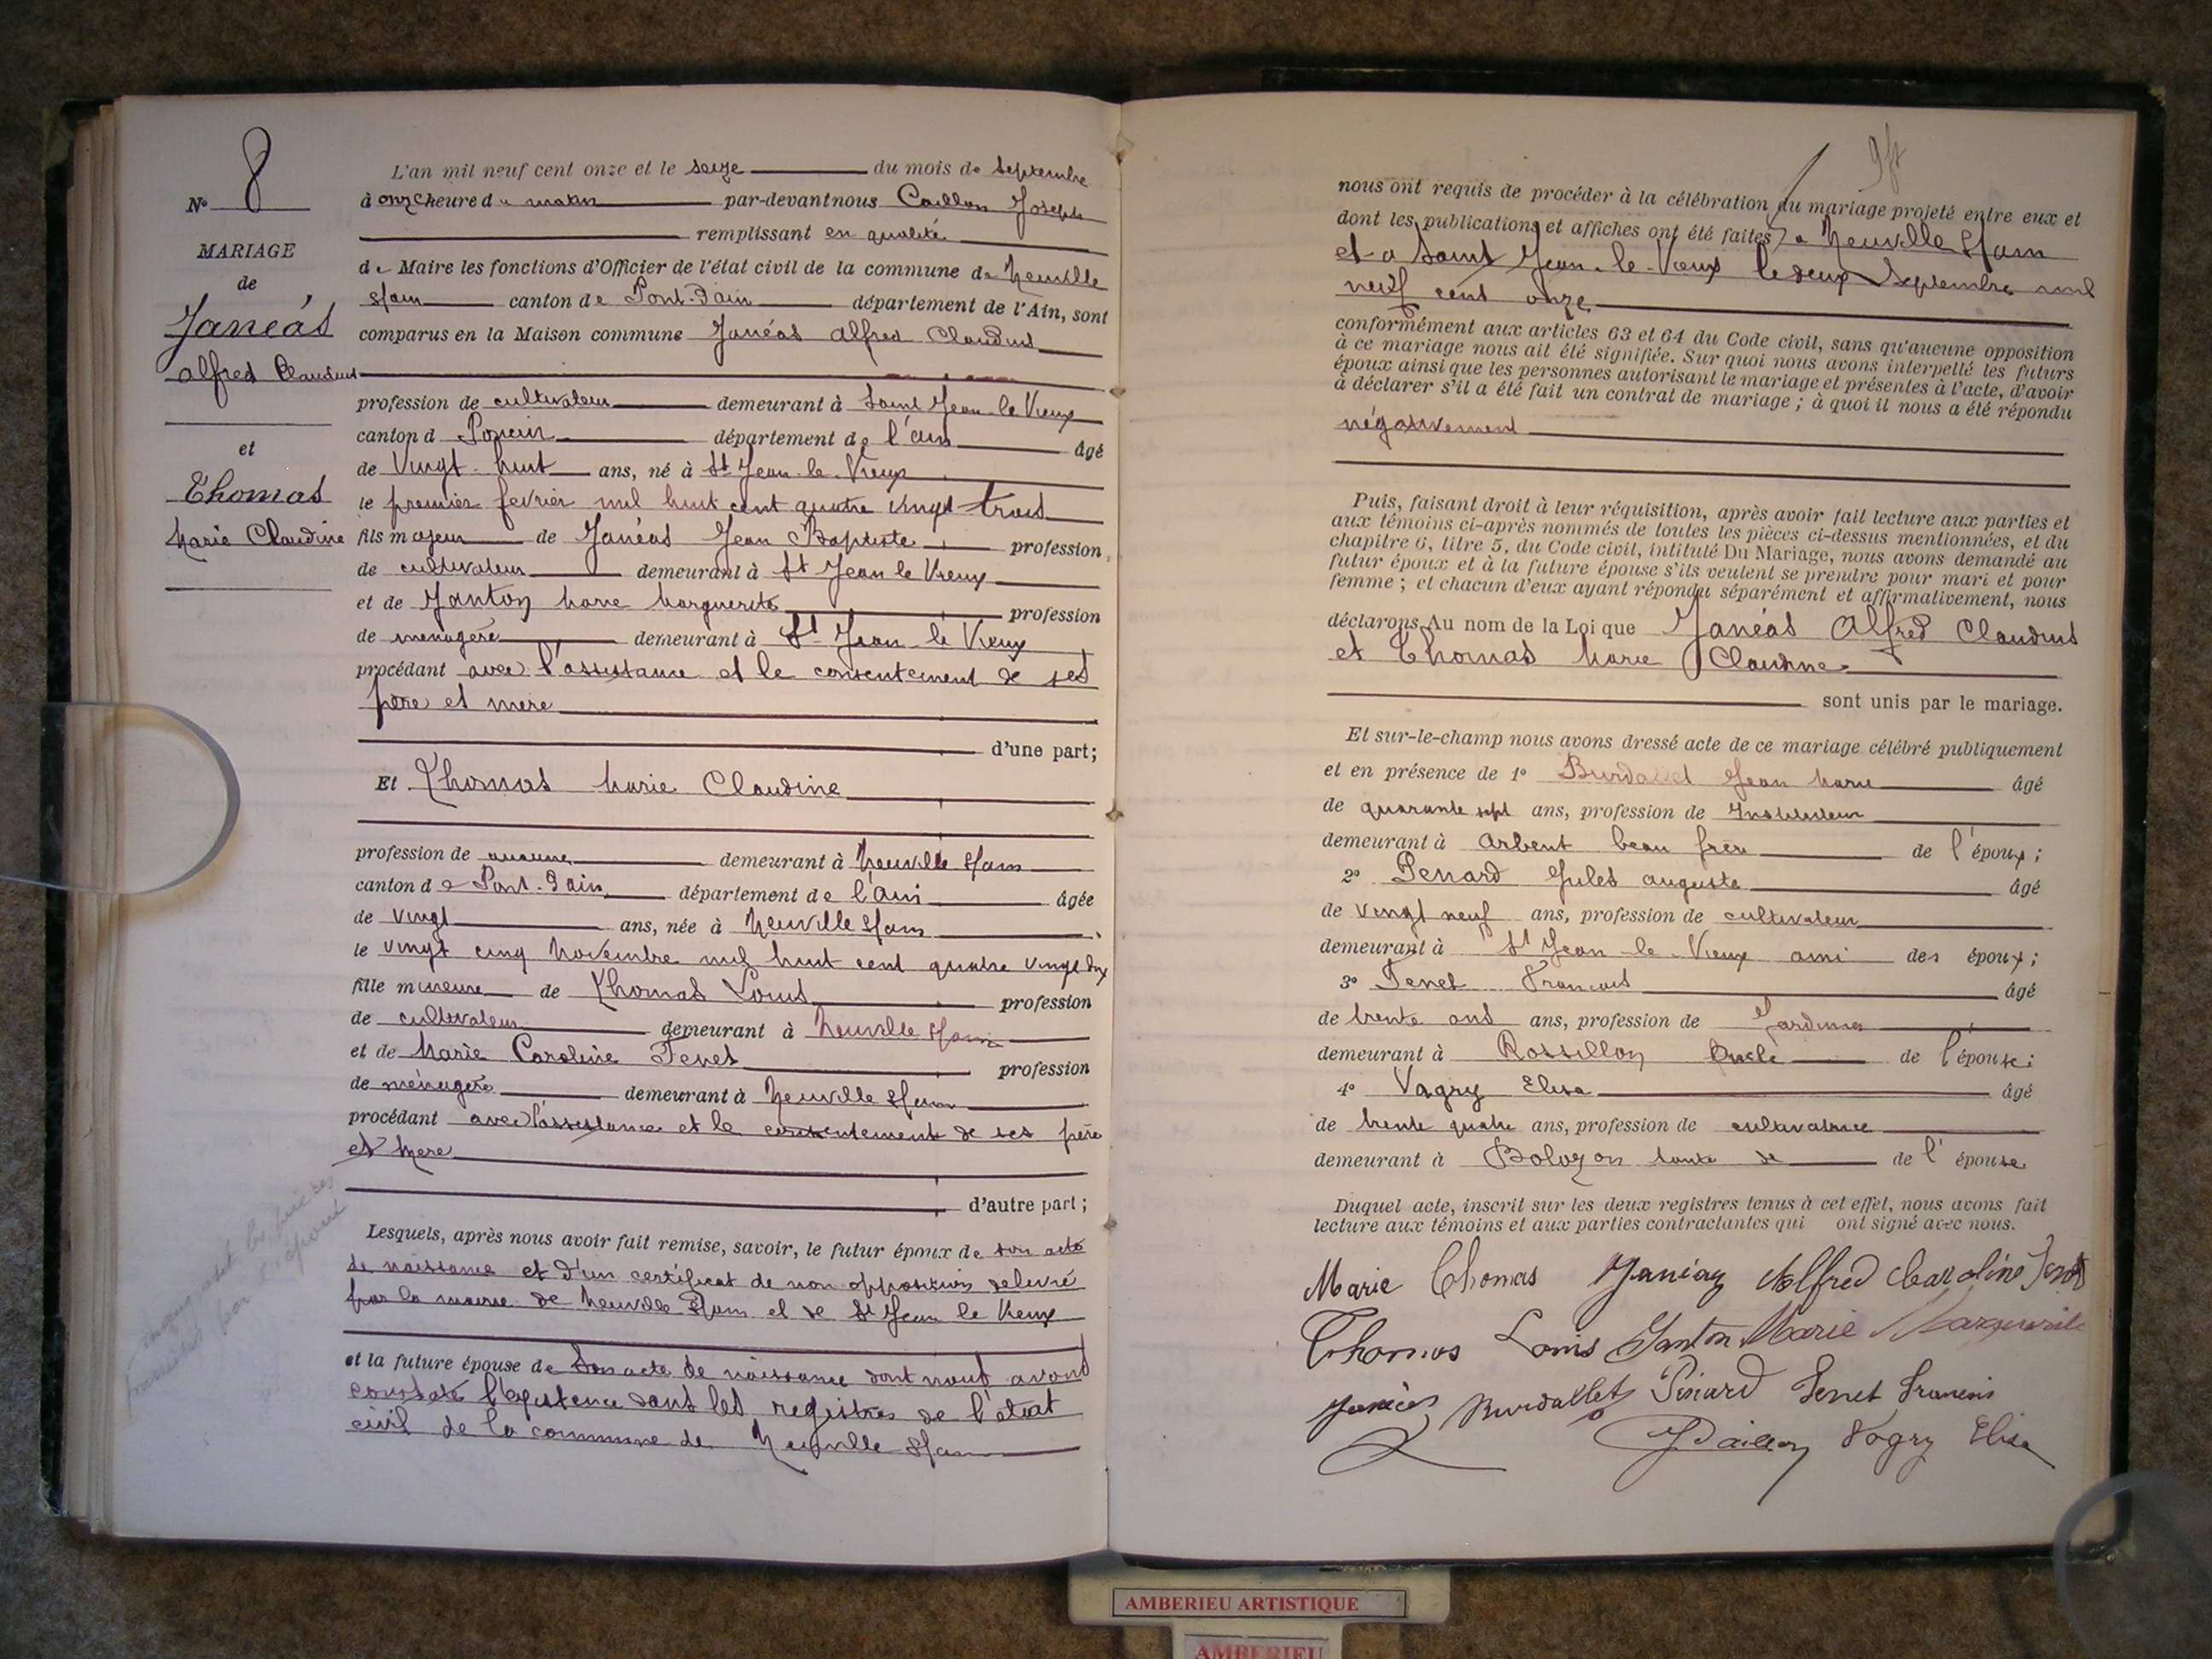 N° 8
MARIAGE
de
Janéas
alfred Claudius
et
Thomas
Marie Claudine
L'an mil neuf cent onze et le seize du mois de septembre
à onze heure du matin par-devant nous Caillon Joseph
remplissant en qualité
de Maire les fonctions d'Officier de l'état civil de la commune de Neuville
s/ain canton de Pont-d'ain département de l'Ain, sont
comparus en la Maison commune Janéas alfred Claudius
profession de cultivateur demeurant à Saint Jean-le Vieux
canton d Poncin département de l'ain âgé
de Vingt-huit ans, né à St Jean-le-Vieux
le premier fevrier mil huit cent quatre vingt trois
fils majeur de Janéas Jean Baptiste profession
de cultivateur demeurant à St Jean le Vieux
et de Janton Marie Marguerite profession
de menagère demeurant à St Jean-le Vieux
procédant avec l'assistance et le consentement de ses
père et mere
d'une part;
Et Thomas Marie Claudine
profession de aucune demeurant à Neuville s/ain
canton de Pont-d'ain département de l'ain âgée
de vingt ans, née à Neuville s/ain
le vingt cinq Novembre mil huit cent quatre vingt dix
fille mineure de Thomas Louis profession
de cultivateur demeurant à Neuville s/ain
et de Marie Caroline Tenet profession
de ménagère demeurant à Neuville s/ain
procédant avec l'assistance et le consentement de ses père
et Mere
d'autre part;
Lesquels, après nous avoir fait remise, savoir, le futur époux de son acte
de naissance et d'un certificat de non opposition delivré
par la mairie de Neuville s/ain et de St Jean le Vieux
et la future épouse de Son acte de naissance dont nous avons
constaté l'existence dans les registres de l'état
civil de la commune de Neuville s/ain
nous ont requis de procéder à la célébration du mariage projeté entre eux et
dont les publications et affiches ont été faites à Neuville s/ain
et a Saint Jean-le-Vieux le deux Septembre mil
neuf cent onze
conformément aux articles 63 et 64 du Code civil, sans qu'aucune opposition
à ce mariage nous ait été signifiée. Sur quoi nous avons interpellé les futurs
époux ainsi que les personnes autorisant le mariage et présentes à l'acte, d'avoir
à déclarer s'il a été fait un contrat de mariage; à quoi il nous a été répondu
négativement
Puis, faisant droit à leur réquisition, après avoir fait lecture aux parties et
aux témoins ci-après nommés de toutes les pièces ci-dessus mentionnées, et du
chapitre 6, titre 5, du Code civil, intitulé Du Mariage, nous avons demandé au
futur époux et à la future épouse s'ils veulent se prendre pour mari et pour
femme; et chacun d'eux ayant répondu séparément et affirmativement, nous
déclarons Au nom de la Loi que Janéas Alfred Claudius
et Thomas Marie Claudine
sont unis par le mariage.
Et sur-le-champ nous avons dressé acte de ce mariage célébré publiquement
et en présence de 1° Burdallet Jean Marie âgé
de quarante sept ans, profession de Instituteur
demeurant à Arbent beau frère de l'époux;
2° Penard Jules auguste âgé
de vingt neuf ans, profession de cultivateur
demeurant à St Jean-le-Vieux ami des époux;
3° Tenet Francois âgé
de trente ans, profession de Jardinier
demeurant à Rossillon Oncle de l'épouse;
4° Vagry Elisa âgé
de trente quatre ans, profession de cultivatrice
demeurant à Bolozon tante de de l'épouse
Duquel acte, inscrit sur les deux registres tenus à cet effet, nous avons fait
lecture aux témoins et aux parties contractantes qui ont signé avec nous.
Marie Thomas Janéaz Alfred Caroline Tenet
Thomas Louis Janton Marie Marguerite
Janéas Burdallet Pénard Tenet Francois
JCaillon Vagry Elisa
AMBERIEU ARTISTIQUE
AMBERIEU